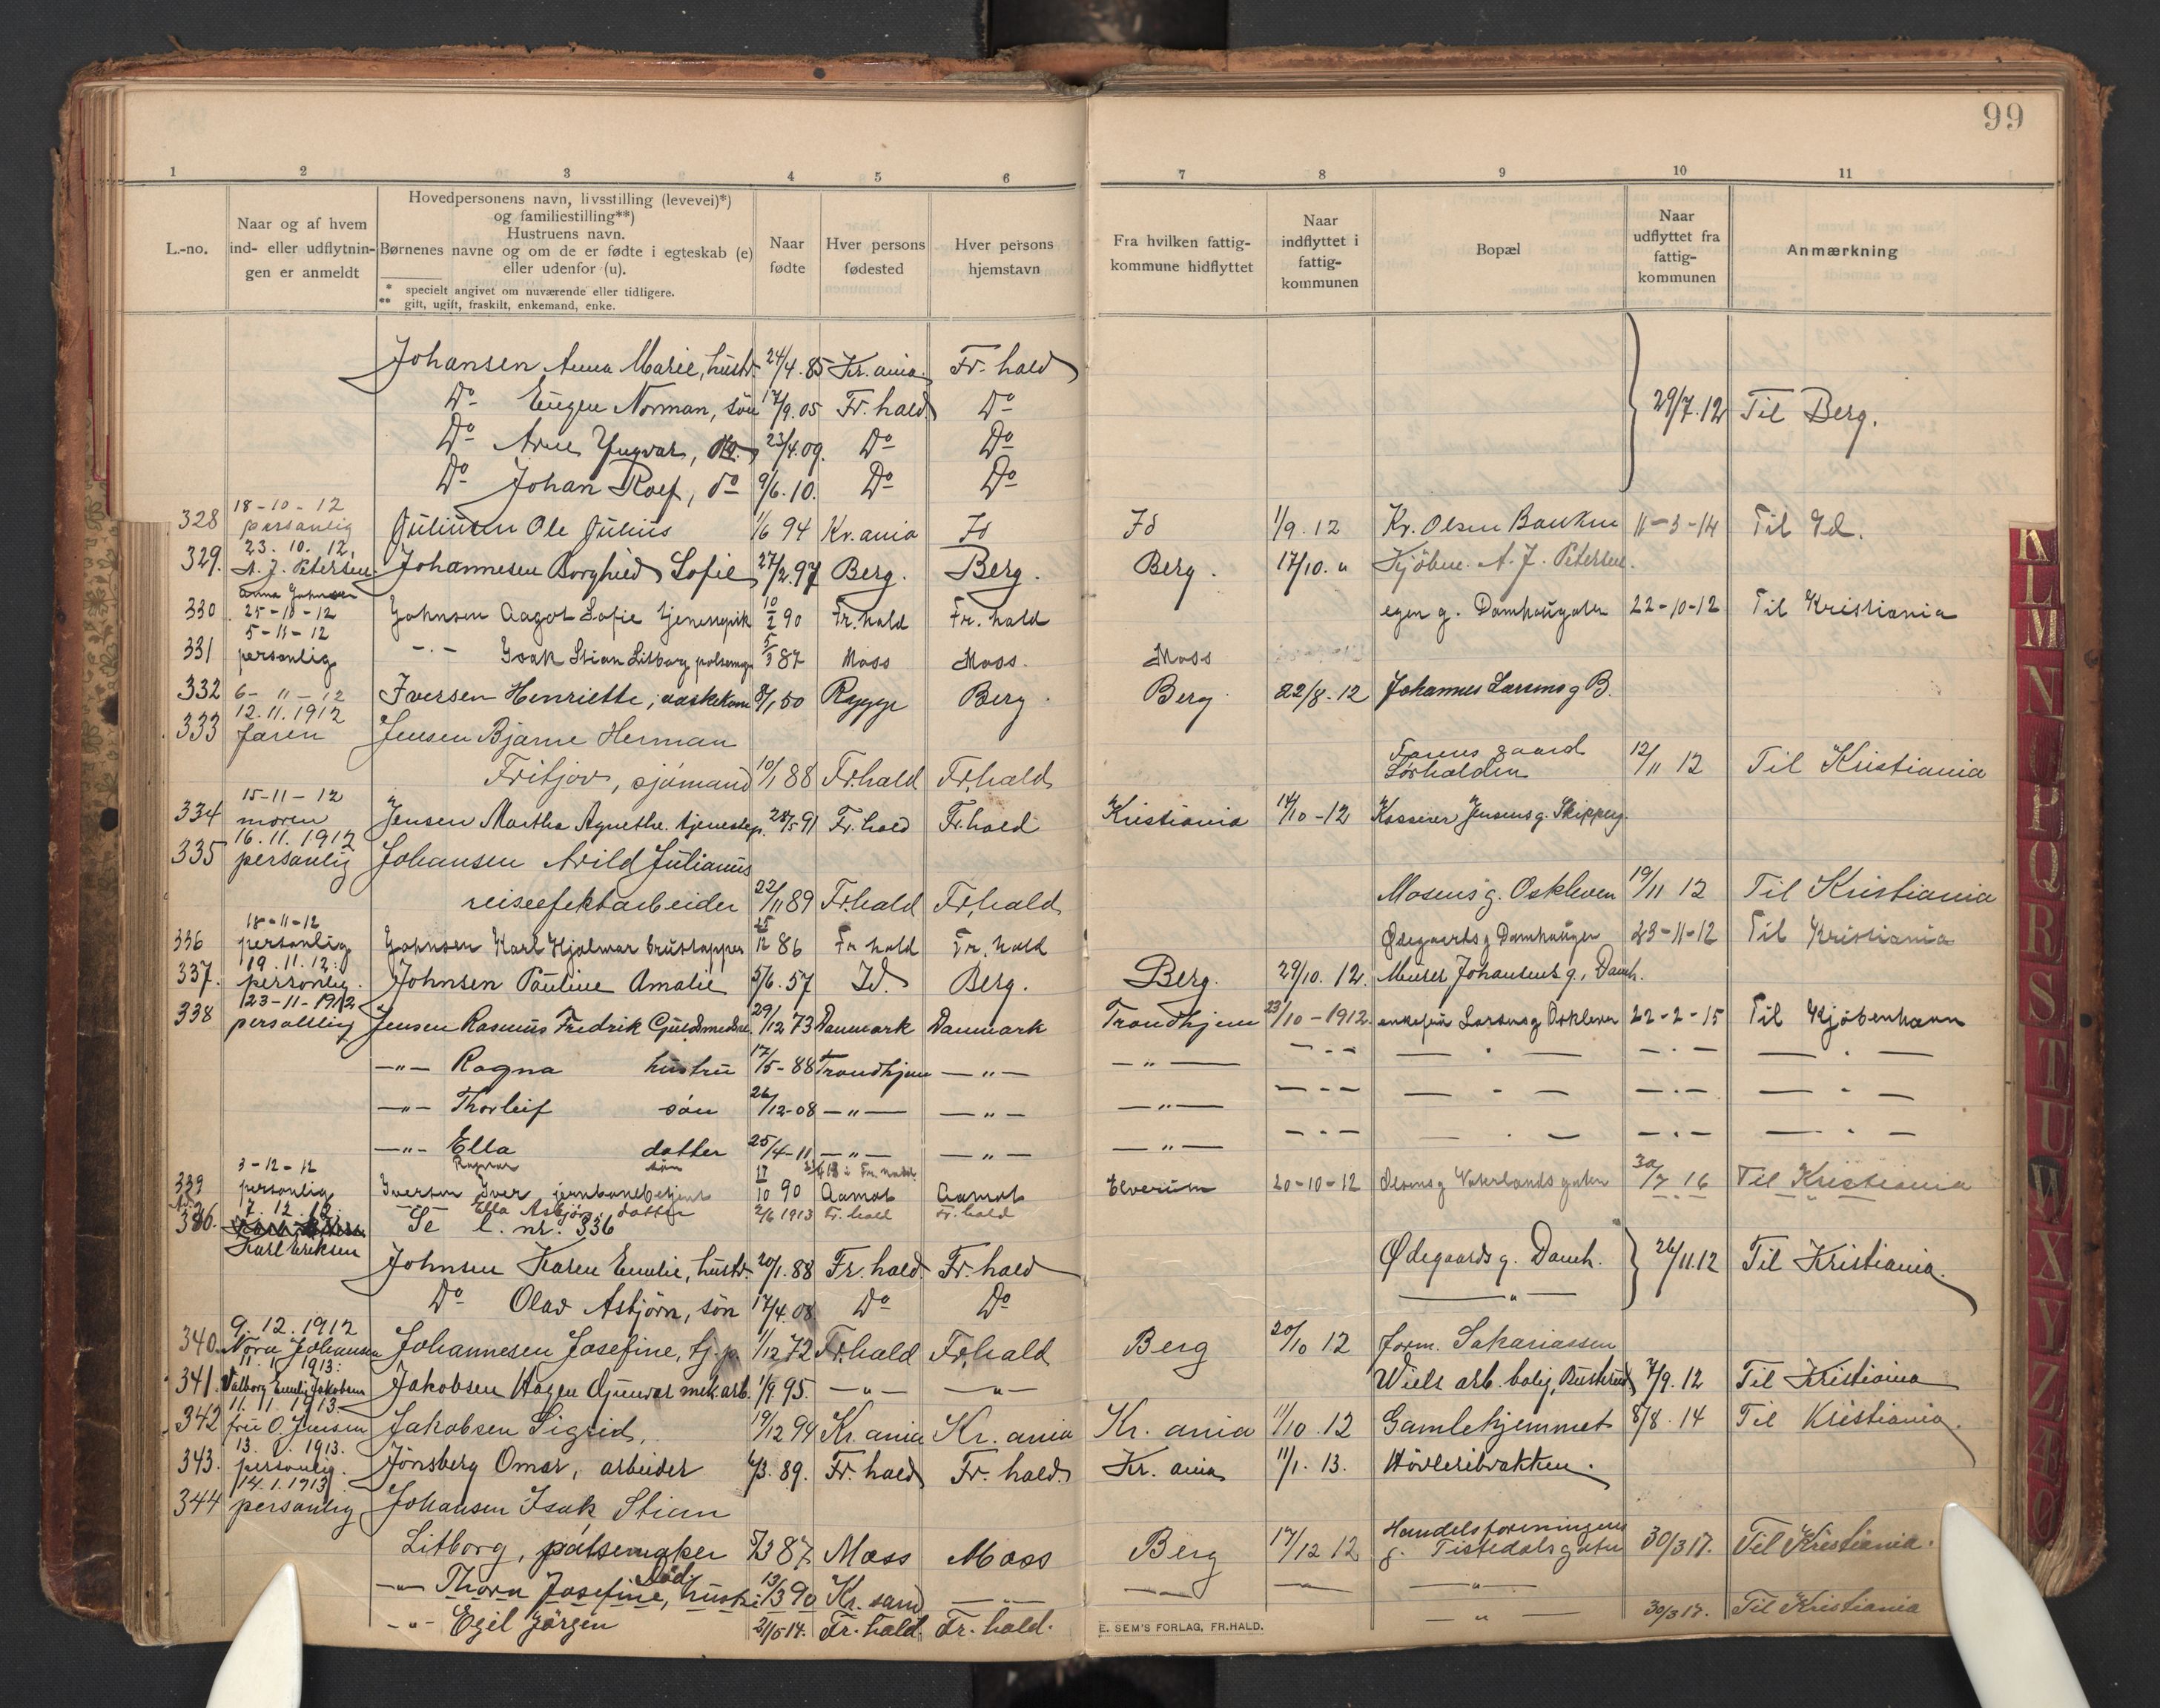 99
1 2 3 4 5 6 7 8 9 10 11
L.-no.
Naar og af hvem
ind- eller udflytnin-
gen er anmeldt
Hovedpersonens navn, livsstilling (levevei)*)
og familiestilling**)
Hustruens navn.
Børnenes navne og om de er fødte i egteskab (e)
eller udenfor (u).
* specielt angivet om nuværende eller tidligere.
** gift, ugift, fraskilt, enkemand, enke.
Naar
fødte
Hver persons
fødested
Hver persons
hjemstavn
Fra hvilken fattig-
kommune hidflyttet
Naar
indflyttet i
fattig-
kommunen
Bopæl
Naar
udflyttet fra
fattig-
kommunen
Anmærkning
Johansen Anna Marie, hustr. 24/4.85 Kr.ania Fr.hald
Do Eugen Norman, søn 17/9.05 Fr.hald Do 29/7.12 Til Berg.
Do Arne Yngvar, do 23/4.09. Do Do
Do Johan Rolf, do 9/6.10. Do Do
18-10-12
328 personlig Juliusen Ole Julius 1/6 94 Kr.ania Id Id 1/9.12 Kr. Olsen Banken 11-3-14 Til Id.
23.10.12.
329. A. J. Petersen Johannesen Borghild Sofie 27/2.97 Berg. Berg. Berg. 17/10. " Kjøbm. A. J. Petersen.
Anna Johnsen
330 25-10-12 Johnsen Aagot Sofie tjenestepik 10/2 90 Fr.hald Fr.hald egen g. Damhaugaten 22-10-12 Til Kristiania
5-11-12
331 personlig -"- Isak Stian Litborg pølsemgr 5/3 87 Moss Moss. Moss
332 6-11-12 Iversen Henriette, vaskekone 8/1 50 Rygge Berg. Berg 22/8.12 Johannes Larsens g B.
12.11.1912
333 faren Jensen Bjarne Herman
Fritjov, sjømand 10/1 88 Fr.hald Fr.hald Farens gaard
Sørhalden 12/11 12 Til Kristiania
15-11-12
334 moren Jensen Martha Agnethe. tjenestep. 28/5 91 Fr.hald Fr.hald Kristiania 14/10-12 Kasserer Jensens g. Skipperg.
16.11.1912
335 personlig Johansen Arild Julianus
reiseefektarbeider 22/11 89 Fr.hald Fr.hald Mosens g. Oskleven 19/11 12 Til Kristiania
18-11-12
336 personlig Johnsen Karl Hjalmar brustapper 25/12 86 Fr.hald Fr.hald Ødegaards g Damhaugen 23-11-12 Til Kristiania
19.11.12.
337. personlig. Johnsen Pauline Amalie 5/6.57 Id. Berg. Berg. 29/10.12. Murer Johansens g., Damh.
23-11-1912
338 personlig Jensen Rasmus Fredrik Guldsmedsv. 29/12 73 Danmark Danmark Trondhjem 23/10-1912. enkefru Larsens g Oskleven 22-2-15 Til Kjøbenhavn
-"- Ragna hustru 17/5-88 Trondhjem -"- -"- -"- -"- -"- -"-
-"- Thorleif søn 26/12-08 -"- -"- -"- -"- -"- -"- -"-
-"- Ella datter 25/4-11 -"- -"- -"- -"- -"- -"- -"-
3-12-12 Ragnar søn
339 personlig Iversen Iver jernbanebetjent 17/10 90 Aamot Aamot Elverum 20-10-12 Olsens g Waterlandsgaten 30/7 16 Til Kristiania
Ella Asbjørg datter 2/6 1913 Fr.hald Fr.hald
17.12.12.
336. Karl Eriksen Se l. nr. 336
Johnsen Karen Emilie, hustr. 20/1.88 Fr.hald Fr.hald Ødegaards g. Damh. 26/11.12 Til Kristiania.
Do Olav Asbjørn, søn 17/4.08 Do Do -"-
9.12.1912
340. Nora Johansen Johannesen Josefine, tj.p 1/12 72 Fr.hald Fr.hald Berg 20/10 12 form. Sakariassen
11.1.1913:
341. Valborg Emilie Jakobsen Jakobsen Hagen Gunvar mek.arb. 1/9 95. -"- -"- Wiels arb. bolig, Buskrud 7/9.12 Til Kristiania
11.11.1913
342 fru O. Jensen Jakobsen Sigrid, 19/12 94 Kr.ania Kr.ania Kr.ania 11/10.12 Gamlehjemmet 8/8.14 Til Kristiania.
13.1.1913.
343. personlig. Jønsberg Omar, arbeider 4/3.89. Fr.hald Fr.hald. Kr.ania 11/1.13. Høvleribakken.
14.1.1913
344 personlig Johansen Isak Stian
Litborg, pølsemaker 5/3 87 Moss Moss Berg 17/12 12 Handelsforeningens
g. Tistedalsgaten 30/3 17. Til Kristiania.
Død
-"- Thora Josefine, hustr. 13/3 90 Kr.sand -"- -"- -"- -"-
-"- Egil Jørgen 21/5 14. Fr.hald. Fr.hald. -"- 30/3 17. Til Kristiania
E. SEM'S FORLAG, FR.HALD.
K
L
M
N
P
Q
R
S
T
U
W
X
Y
Z
Æ
Ø